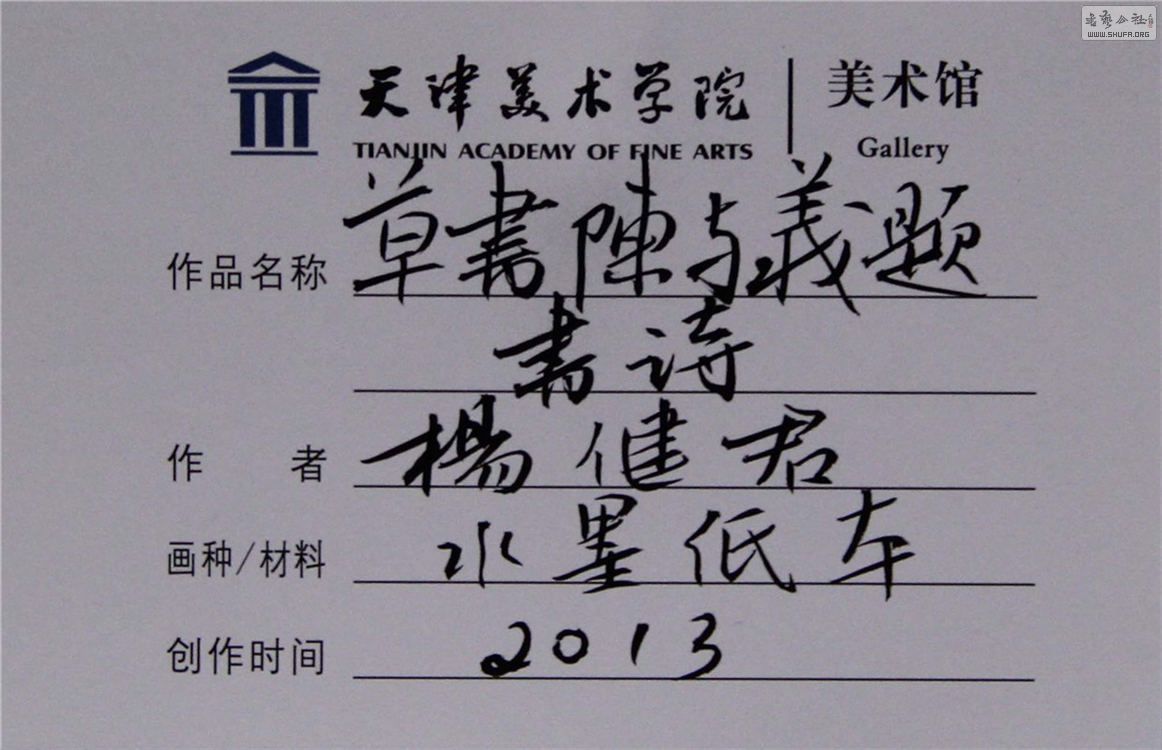 書藝公社
WWW.SHUFA.ORG
天津美术学院 美术馆
TIANJIN ACADEMY OF FINE ARTS Gallery
作品名称 草書陳与義題
書诗
作 者 楊健君
画种/材料 水墨纸本
创作时间 2013